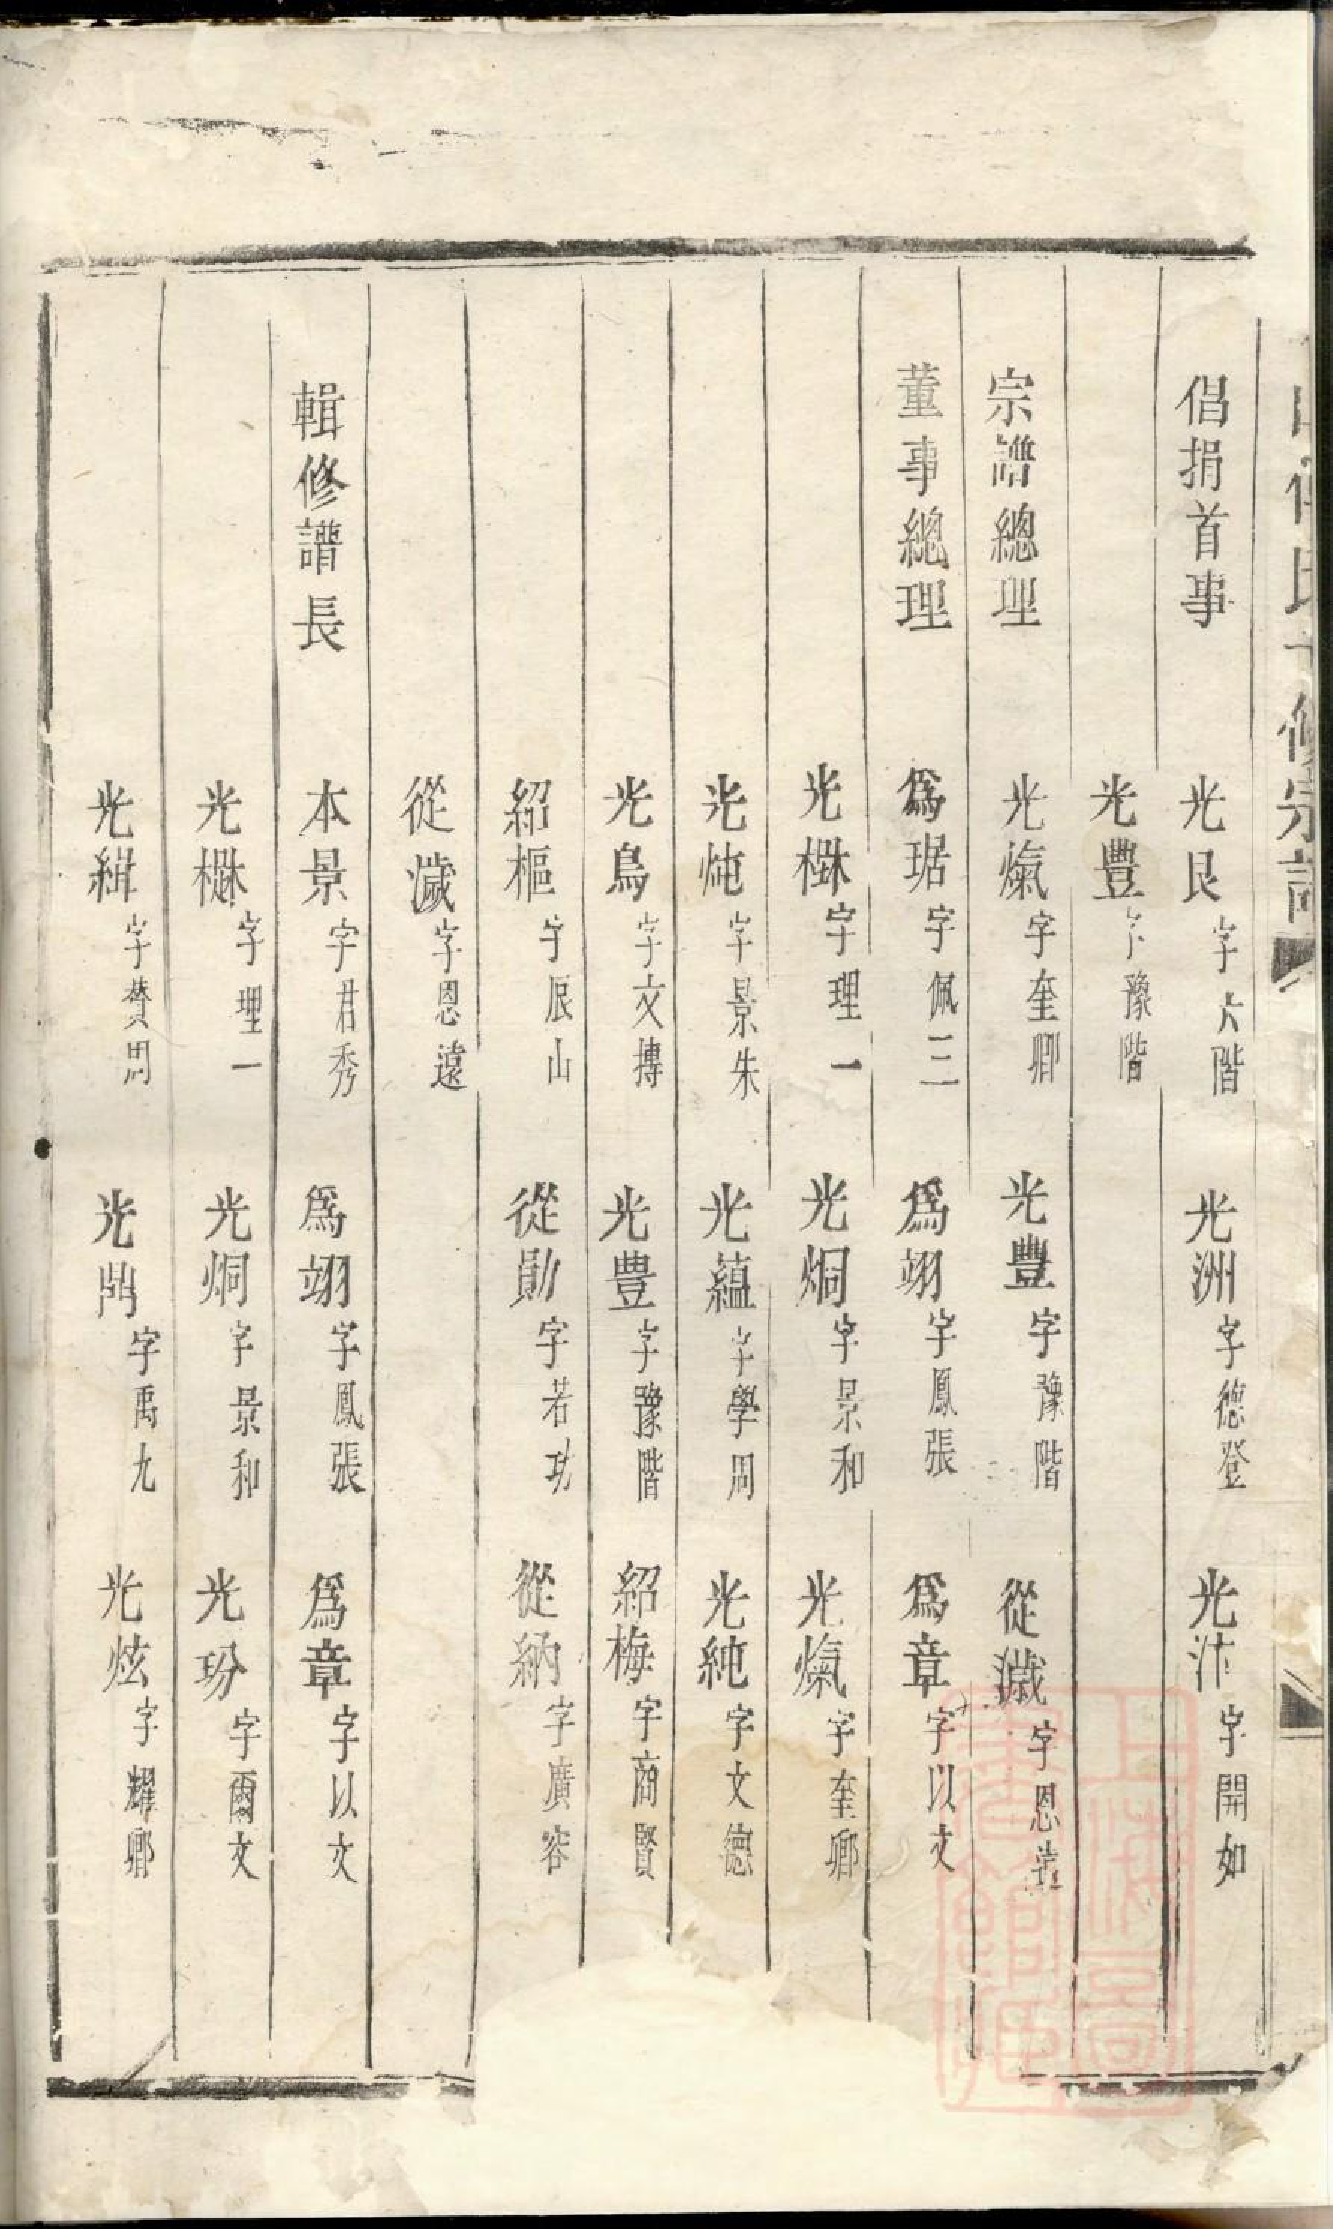 倡捐首事 光艮字六階 光洲字德登 光汴字開如
光豐字豫階
宗譜總理 光熂字奎卿 光豐字豫階 從濊字恩遠
董事總理 爲琚字佩三 爲翊字鳳張 爲章字以文
光楙字理一 光烔字景和 光熂字奎卿
光炖字景朱 光蘊字學周 光純字文德
光鳥字文摶 光豐字豫階 紹梅字商賢
紹樞字辰山 從勛字若功 從納字廣容
從濊字恩遠
輯修譜長 本景字君秀 爲翊字鳳張 爲章字以文
光楙字理一 光烔字景和 光玢字爾文
光緝字贊周 光鼎字禹九 光炫字耀卿